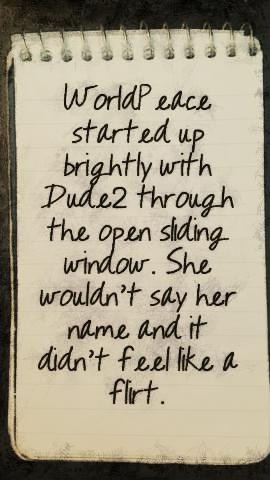 WorldPeace
started up
brightly with
Dude2 through
the open sliding
window. She
wouldn't say her
name and it
didn't feel like a
flirt.